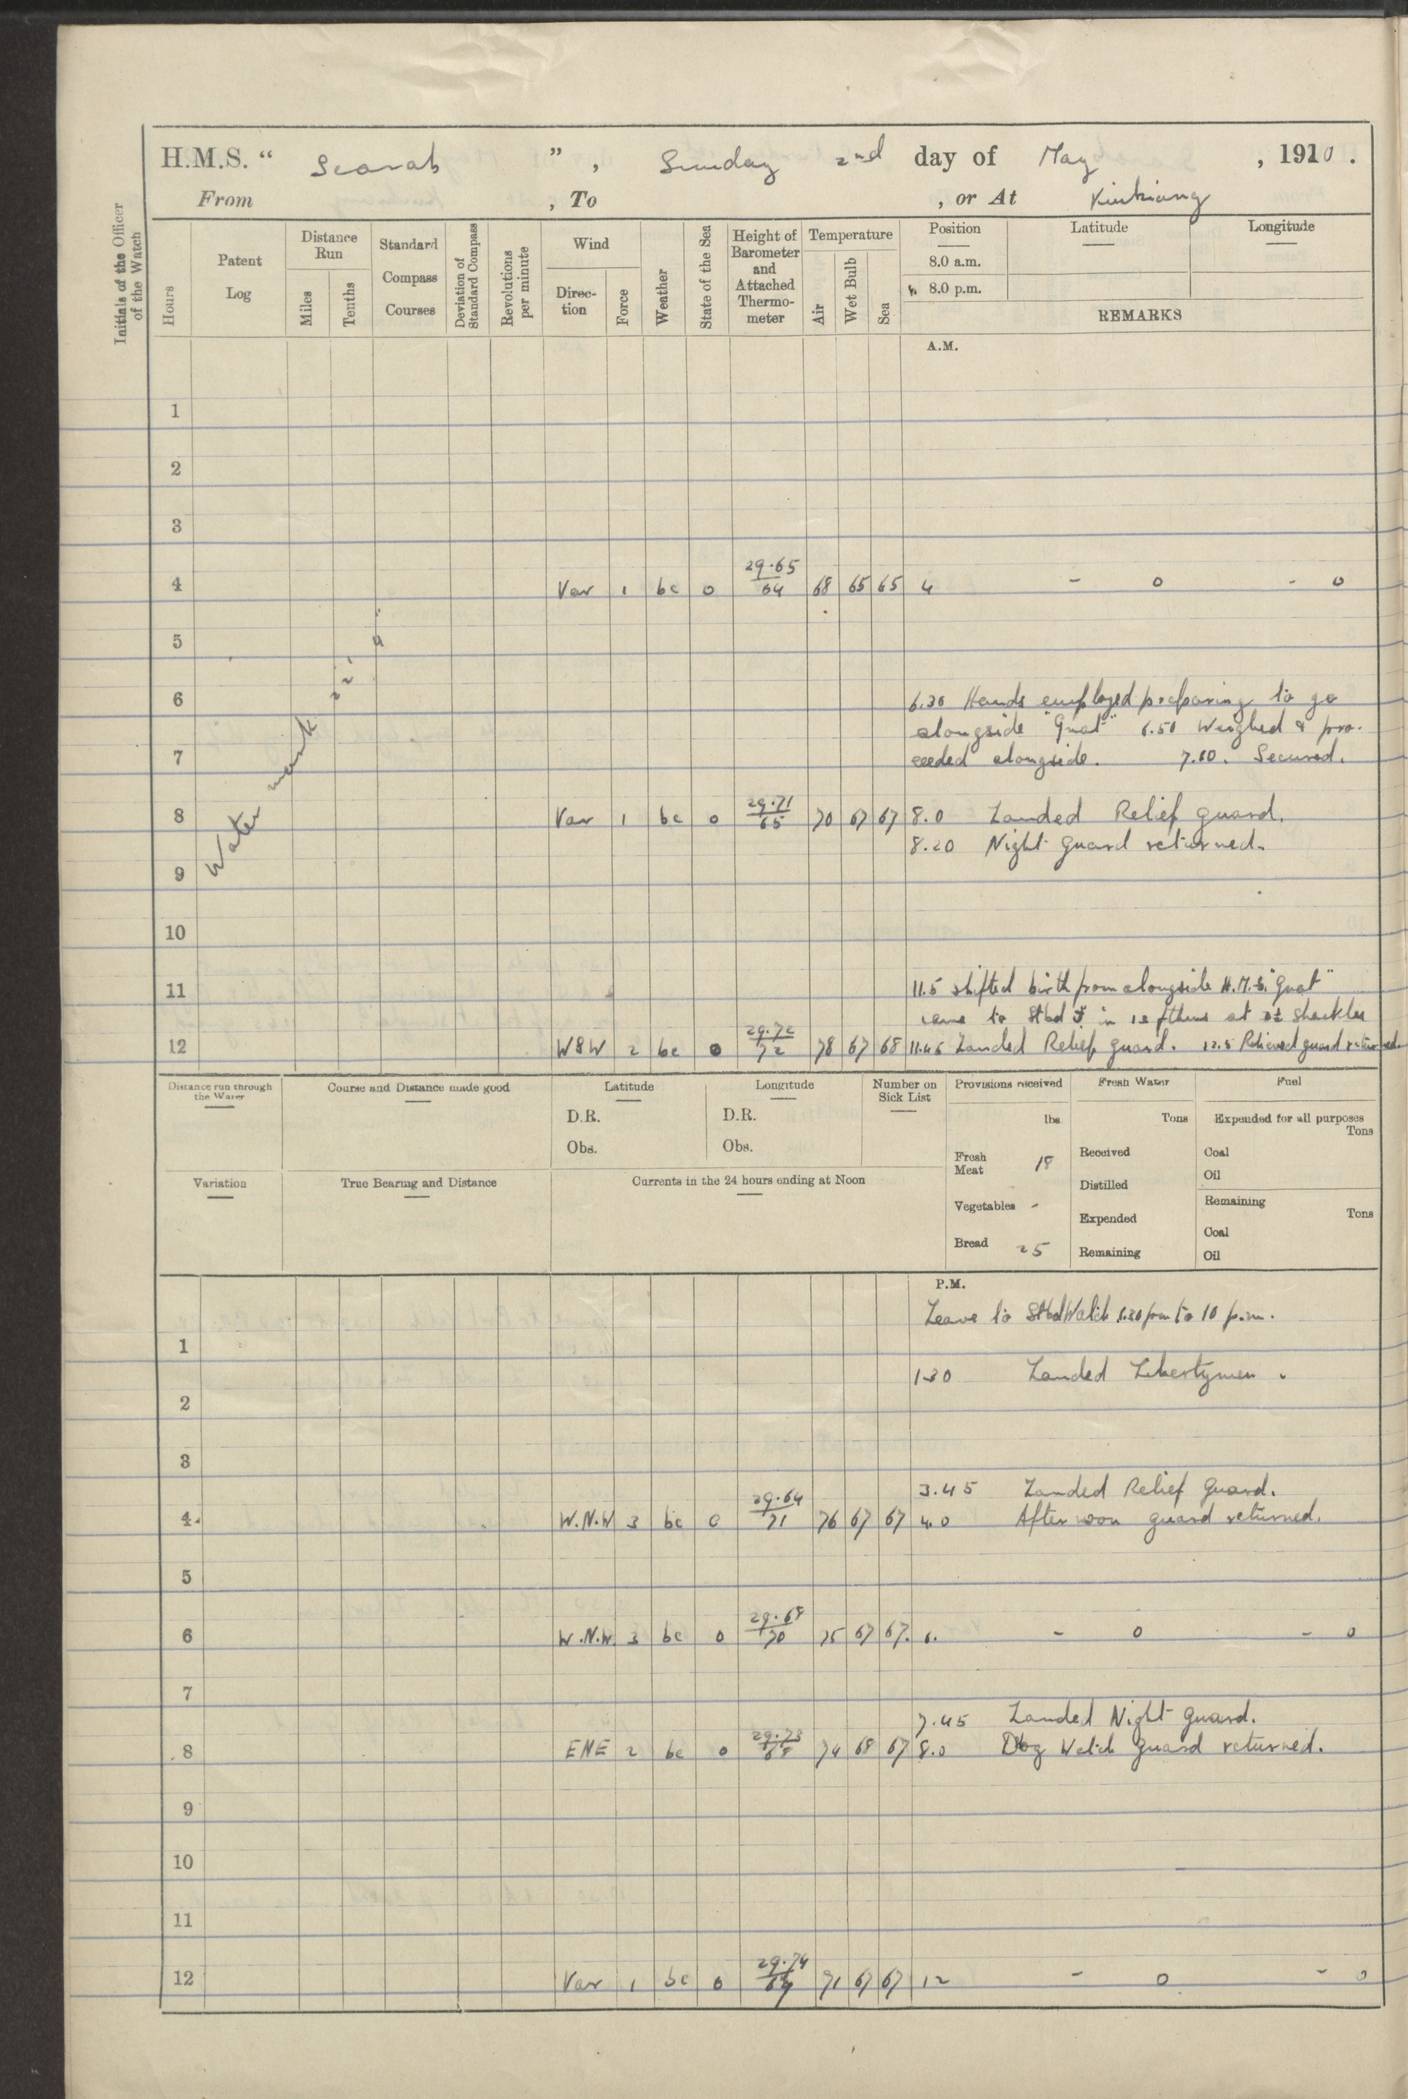 H.M.S. " Scarab ", Sunday 2nd day of May, 1920.
From , To , or At Kiukiang
Initials of the Officer of the Watch
Hours
Patent Log
Distance Run
Miles
Tenths
Standard Compass Courses
Deviation of Standard Compass
Revolutions per minute
Wind
Direc-tion
Force
Weather
State of the Sea
Height of Barometer and Attached Thermo-meter
Temperature
Air
Wet Bulb
Sea
Position
8.0 a.m.
8.0 p.m.
Latitude
Longitude
REMARKS
A.M.
1
2
3
4 Var 1 bc 0 29.65 64 68 65 65 4 - 0 - 0
5
Water mark 22' 9"
6 6.30 Hands employed preparing to go
alongside "Gnat" 6.50 Weighed & pro-
7 ceeded alongside. 7.10. Secured.
8 Var 1 bc 0 29.71 65 70 67 67 8.0 Landed Relief guard.
8.20 Night guard returned.
9
10
11 11.5 shifted birth from alongside H.M.S. "Gnat"
came to Stbd in 13 fthms at shackles
12 WSW 2 bc 0 29.72 72 78 67 68 11.45 Landed Relief guard. 12.5 Relieved guard returned.
Distance run through the Water
Course and Distance made good
Latitude
D.R.
Obs.
Longitude
D.R.
Obs.
Number on Sick List
Provisions received
lbs.
Fresh Meat 18
Vegetables -
Bread 25
Fresh Water
Tons
Received
Distilled
Expended
Remaining
Fuel
Expended for all purposes
Tons
Coal
Oil
Remaining
Tons
Coal
Oil
Variation
True Bearing and Distance
Currents in the 24 hours ending at Noon
P.M.
Leave to Stbd Watch 1.30 pm to 10 p.m.
1
1-30 Landed Libertymen.
2
3
3.45 Landed Relief Guard.
4. W.N.W 3 bc 0 29.64 71 76 67 67 4.0 Afternoon guard returned.
5
6 W.N.W 3 bc 0 29.68 70 75 67 67. 6. - 0 - 0
7
7.45 Landed Night guard.
8 ENE 2 bc 0 29.73 68 74 68 67 8.0 Dog Watch guard returned.
9
10
11
12 Var 1 bc 0 29.74 71 67 67 12 - 0 - 0